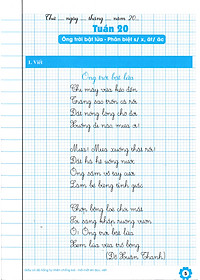 Thứ ... ngày ... tháng ... năm 20...
Tuần 20
Ông trời bật lửa - Phân biệt s/ x, ât/ âc
1. Viết
Ông trời bật lửa
Chị mây vừa kéo đến
Trăng sao trốn cả rồi
Đất nóng lòng chờ đợi
Xuống đi nào, mưa ơi!
Mưa! Mưa xuống thật rồi!
Đất hả hê uống nước
Ông sấm vỗ tay cười
Làm bé bừng tỉnh giấc
Chớp bỗng loè chói mắt
Soi sáng khắp ruộng vườn
Ơ! Ông trời bật lửa
Xem lúa vừa trổ bông
(Đỗ Xuân Thanh)